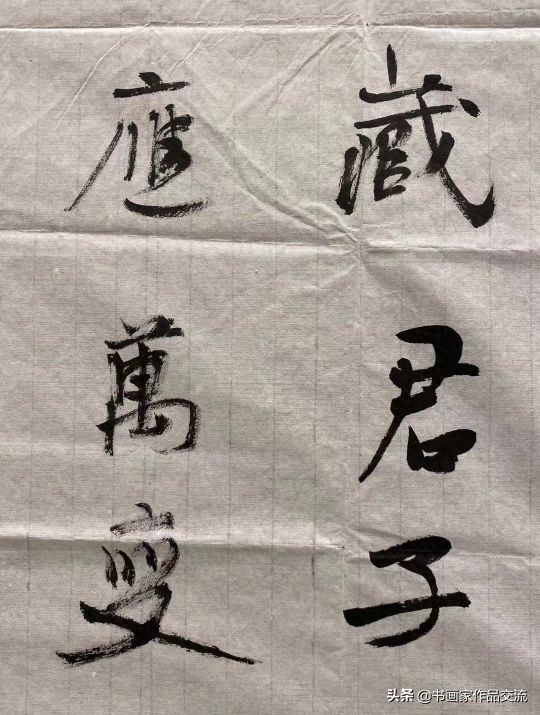 藏君子
應萬变
头条 @书画家作品交流